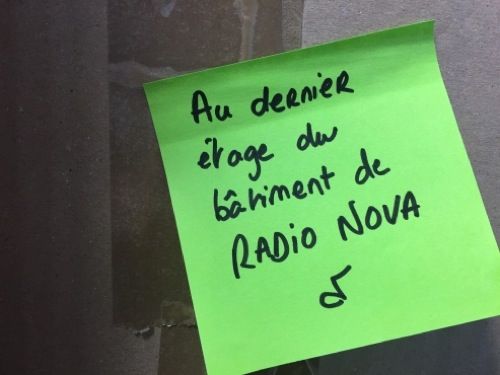 Au dernier
étage du
bâtiment de
RADIO NOVA